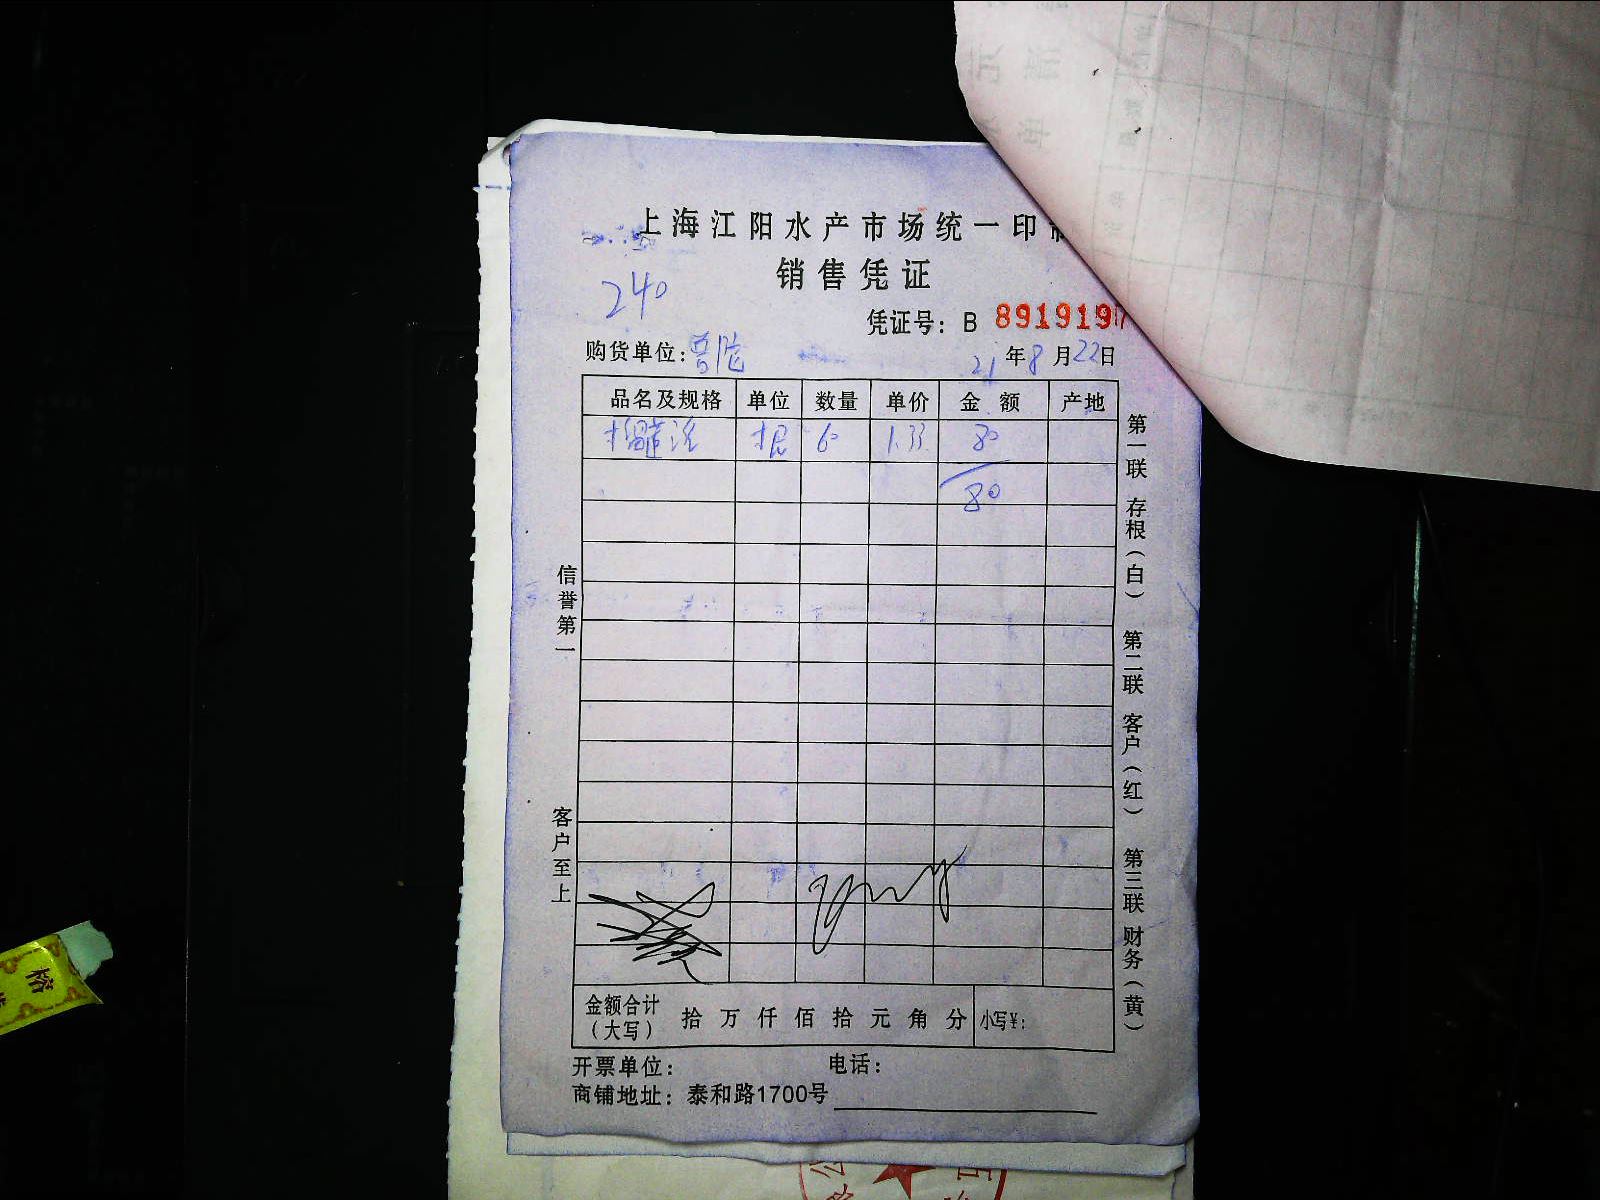 上海江阳水产市场统一印制
销售凭证
240
凭证号： B 891919
购货单位：普陀 21年8月22日
品名及规格 单位 数量 单价 金 额 产地
根 60 1.33 80
80
信誉第一
客户至上
第一联 存根（白） 第二联 客户（红） 第三联 财务（黄）
金额合计（大写） 拾 万 仟 佰 拾 元 角 分 小写¥：
开票单位： 电话：
商铺地址：泰和路1700号